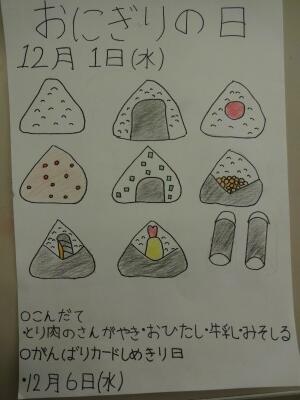 おにぎりの日
12月1日(水)
○こんだて
・とり肉のさんがやき・おひたし・牛乳・みそしる
○がんばりカードしめきり日
・12月6日(水)